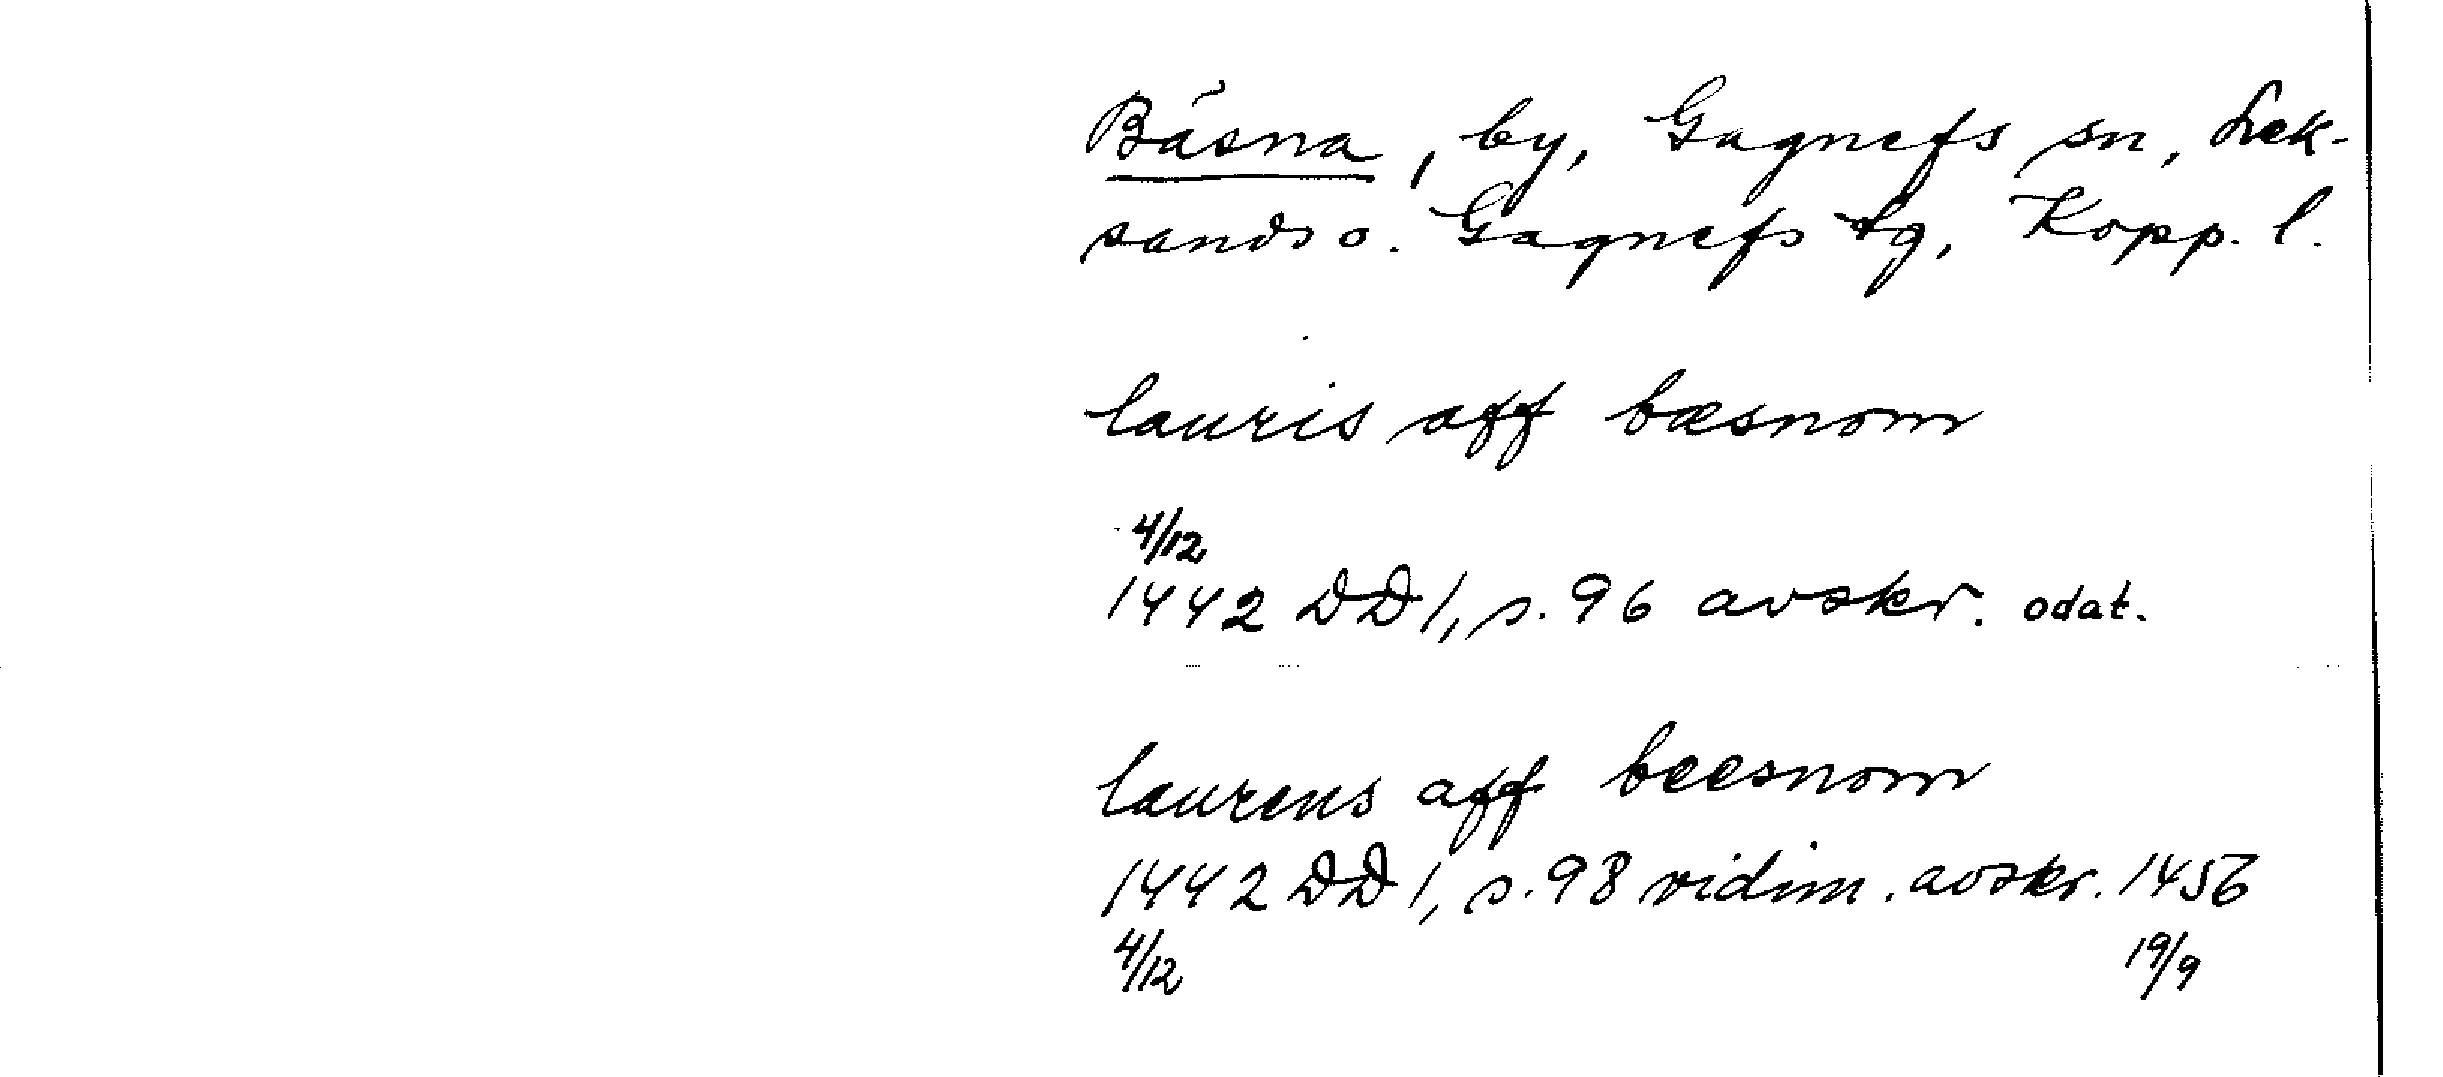 Bäsna, by, Gagnefs sn, Lek-
sands o. Gagnefs tg, Kopp. l.
lauris aff bæsnom
4/12
1442 DD 1, s. 96 avskr. odat.
laurens aff beesnom
1442 DD 1, s. 98 vidim. avskr. 1456
4/12 19/9